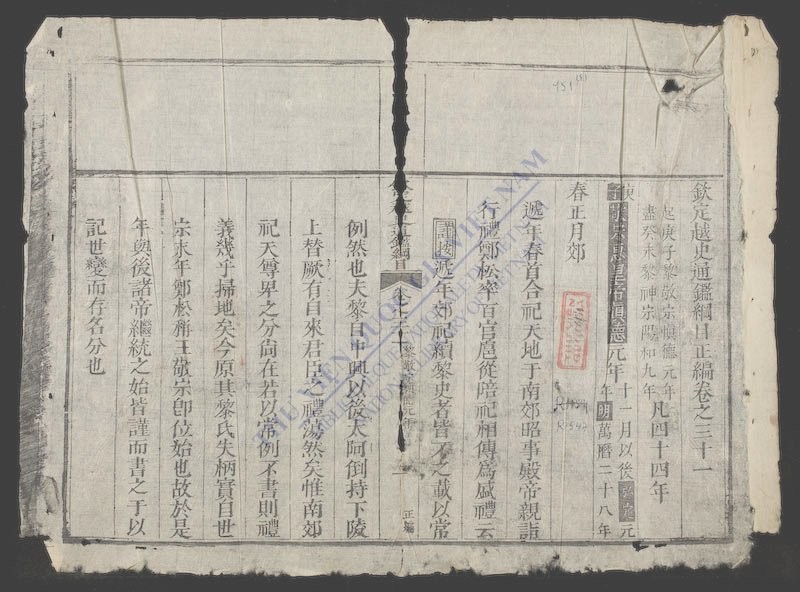 欽定越史通鑑綱目正編卷之三十一
起庚子黎敬宗慎德元年
盡癸未黎神宗陽和九年凡四十四年
庚子
元年十一月以後弘定元年明萬曆二十八年
春正月郊
遞年春首合祀天地于南郊昭事殿帝親詣
行禮鄭松率百官扈從陪祀相傳為盛禮云
謹按近年郊祀續黎史者皆不之載以常
通鑑綱目
卷之三十一
正編
例然也夫黎自中興以後太阿倒持下陵
上替厥有自來君臣之禮蕩然矣惟南郊
祀天尊卑之分尚在若以常例不書則禮
義幾乎掃地矣今原其黎氏失柄實自世
宗末年鄭松稱王敬宗即位始也故於是
年與後諸帝繼統之始皆謹而書之于以
記世變而存名分也
THƯ VIỆN QUỐC GIA VIỆT NAM
BIBLIOTHEQUE NATIONALE DU VIETNAM
NATIONAL LIBRARY OF VIETNAM